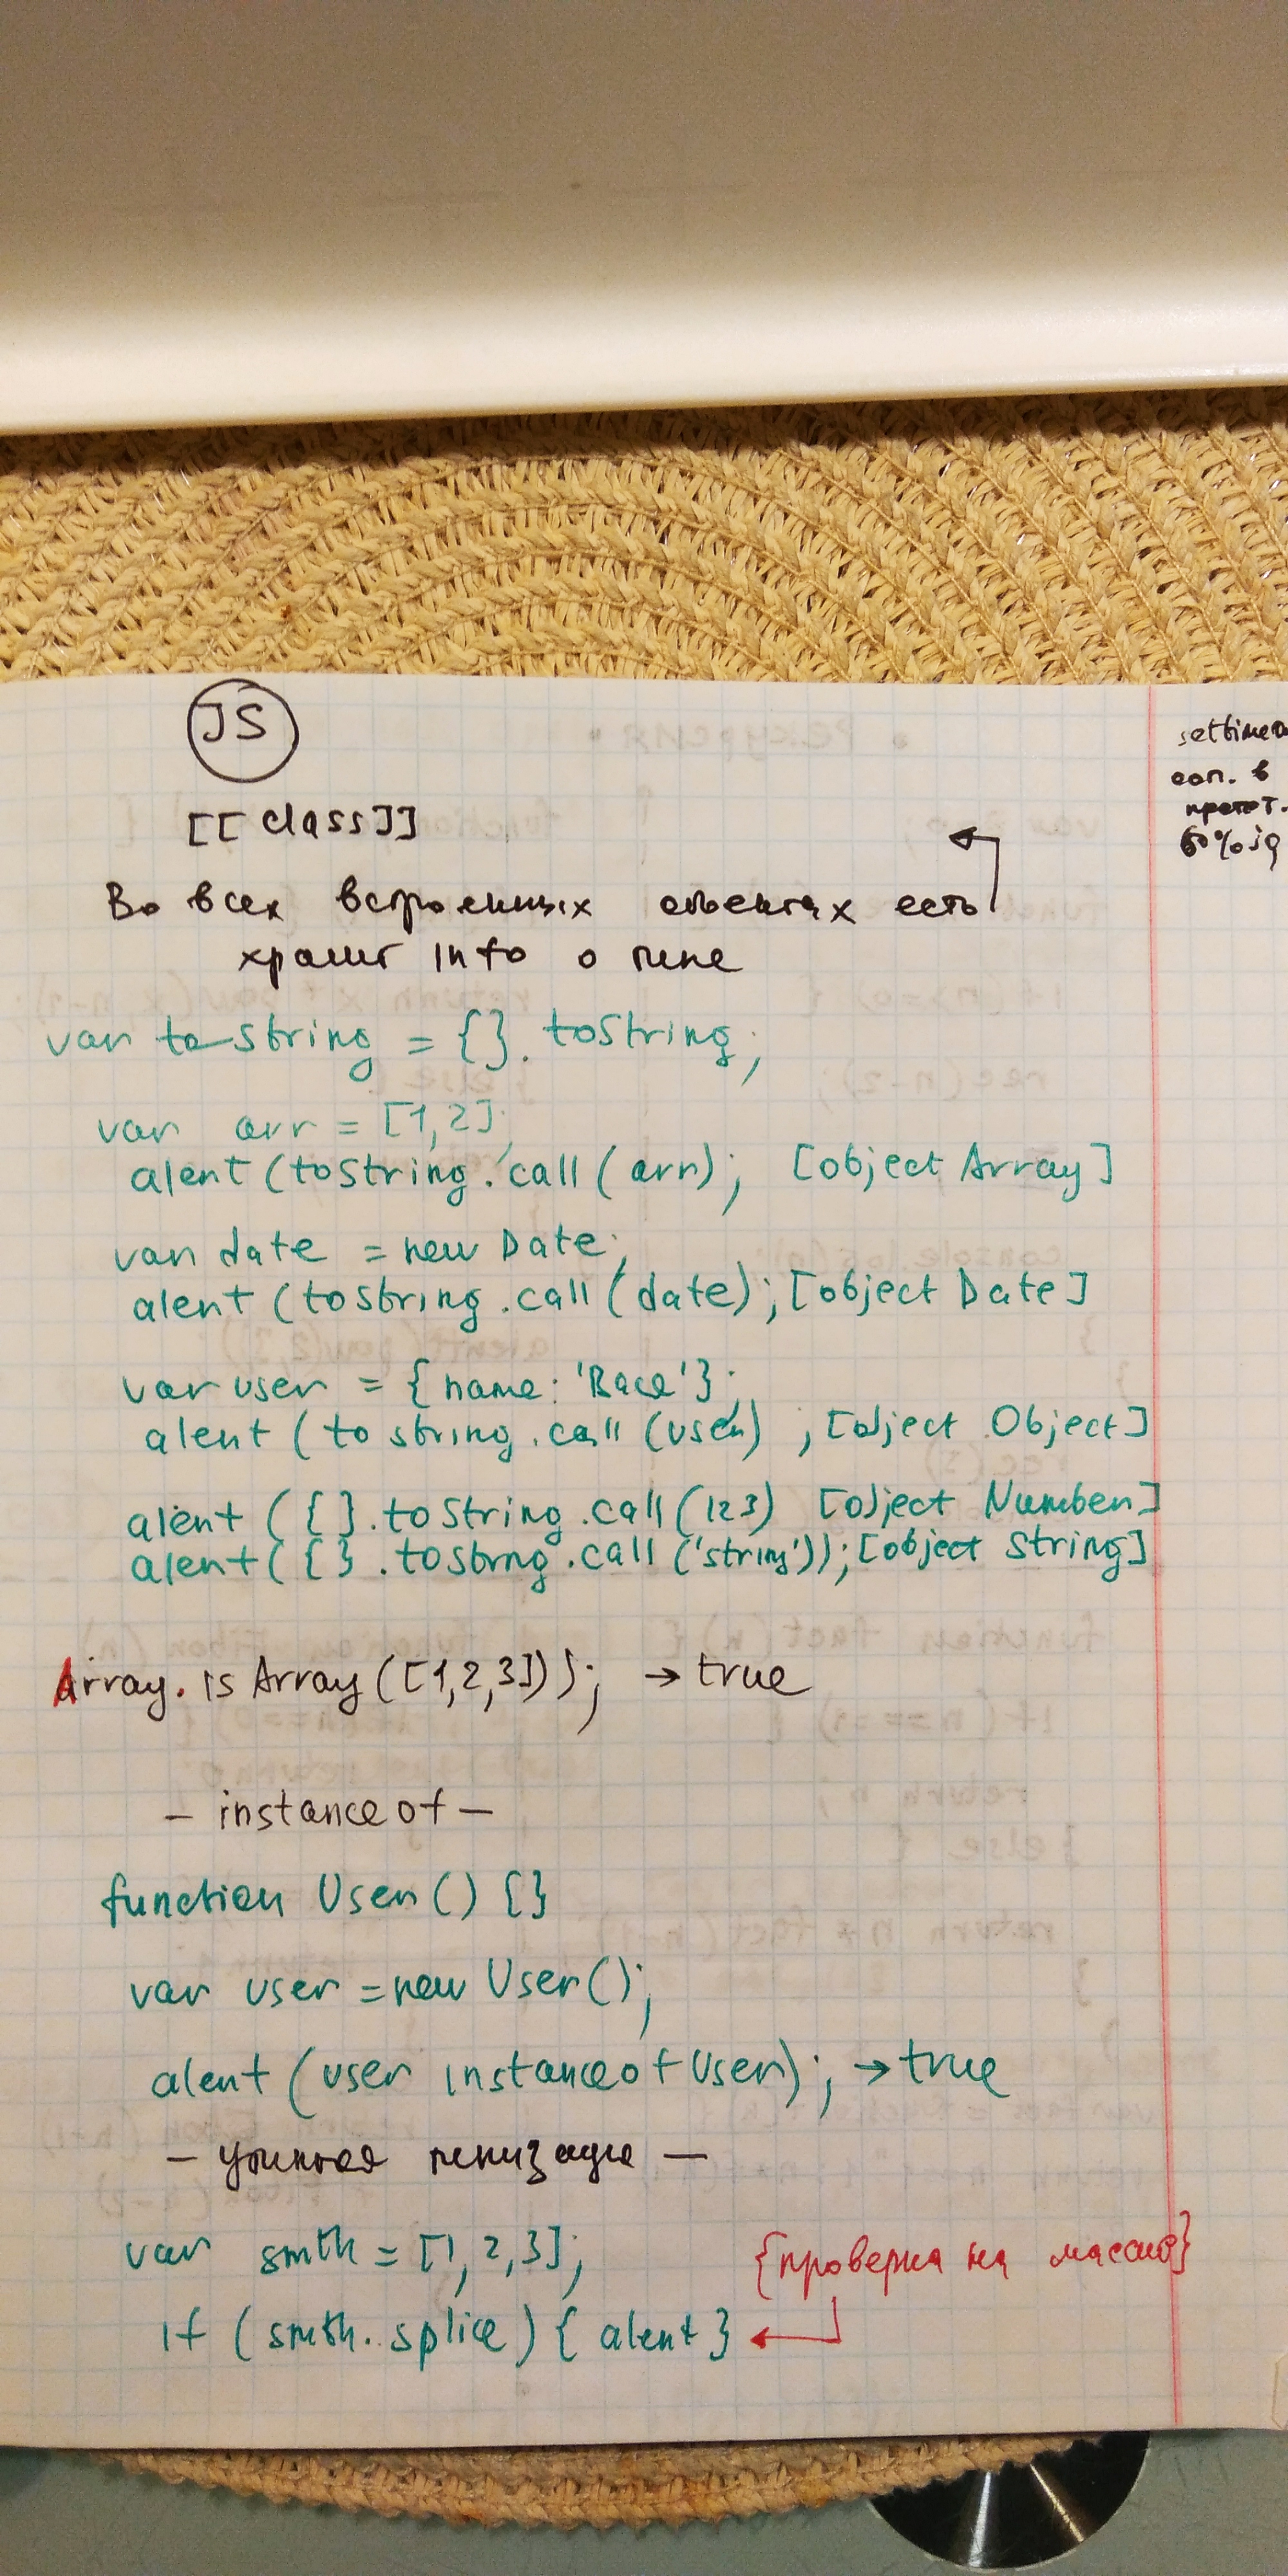 JS
[[class]]
Во всех встроенных объектах есть
хранит info о типе
var toString = {}.toString;
var arr = [1,2];
alert (toString.call(arr); [object Array]
var date = new Date;
alert (toString.call(date); [object Date]
var user = {name: 'Вася'};
alert (toString.call(user) ; [object Object]
alert ({}.toString.call(123) [object Number]
alert({}.toStrng.call('string')); [object String]
Array.isArray([1,2,3])); → true
- instanceof -
function User() {}
var user = new User();
alert (user instanceof User); → true
- утиная типизация -
var smth = [1,2,3]; {проверка на массив}
if (smth.splice) { alert }
в
60%